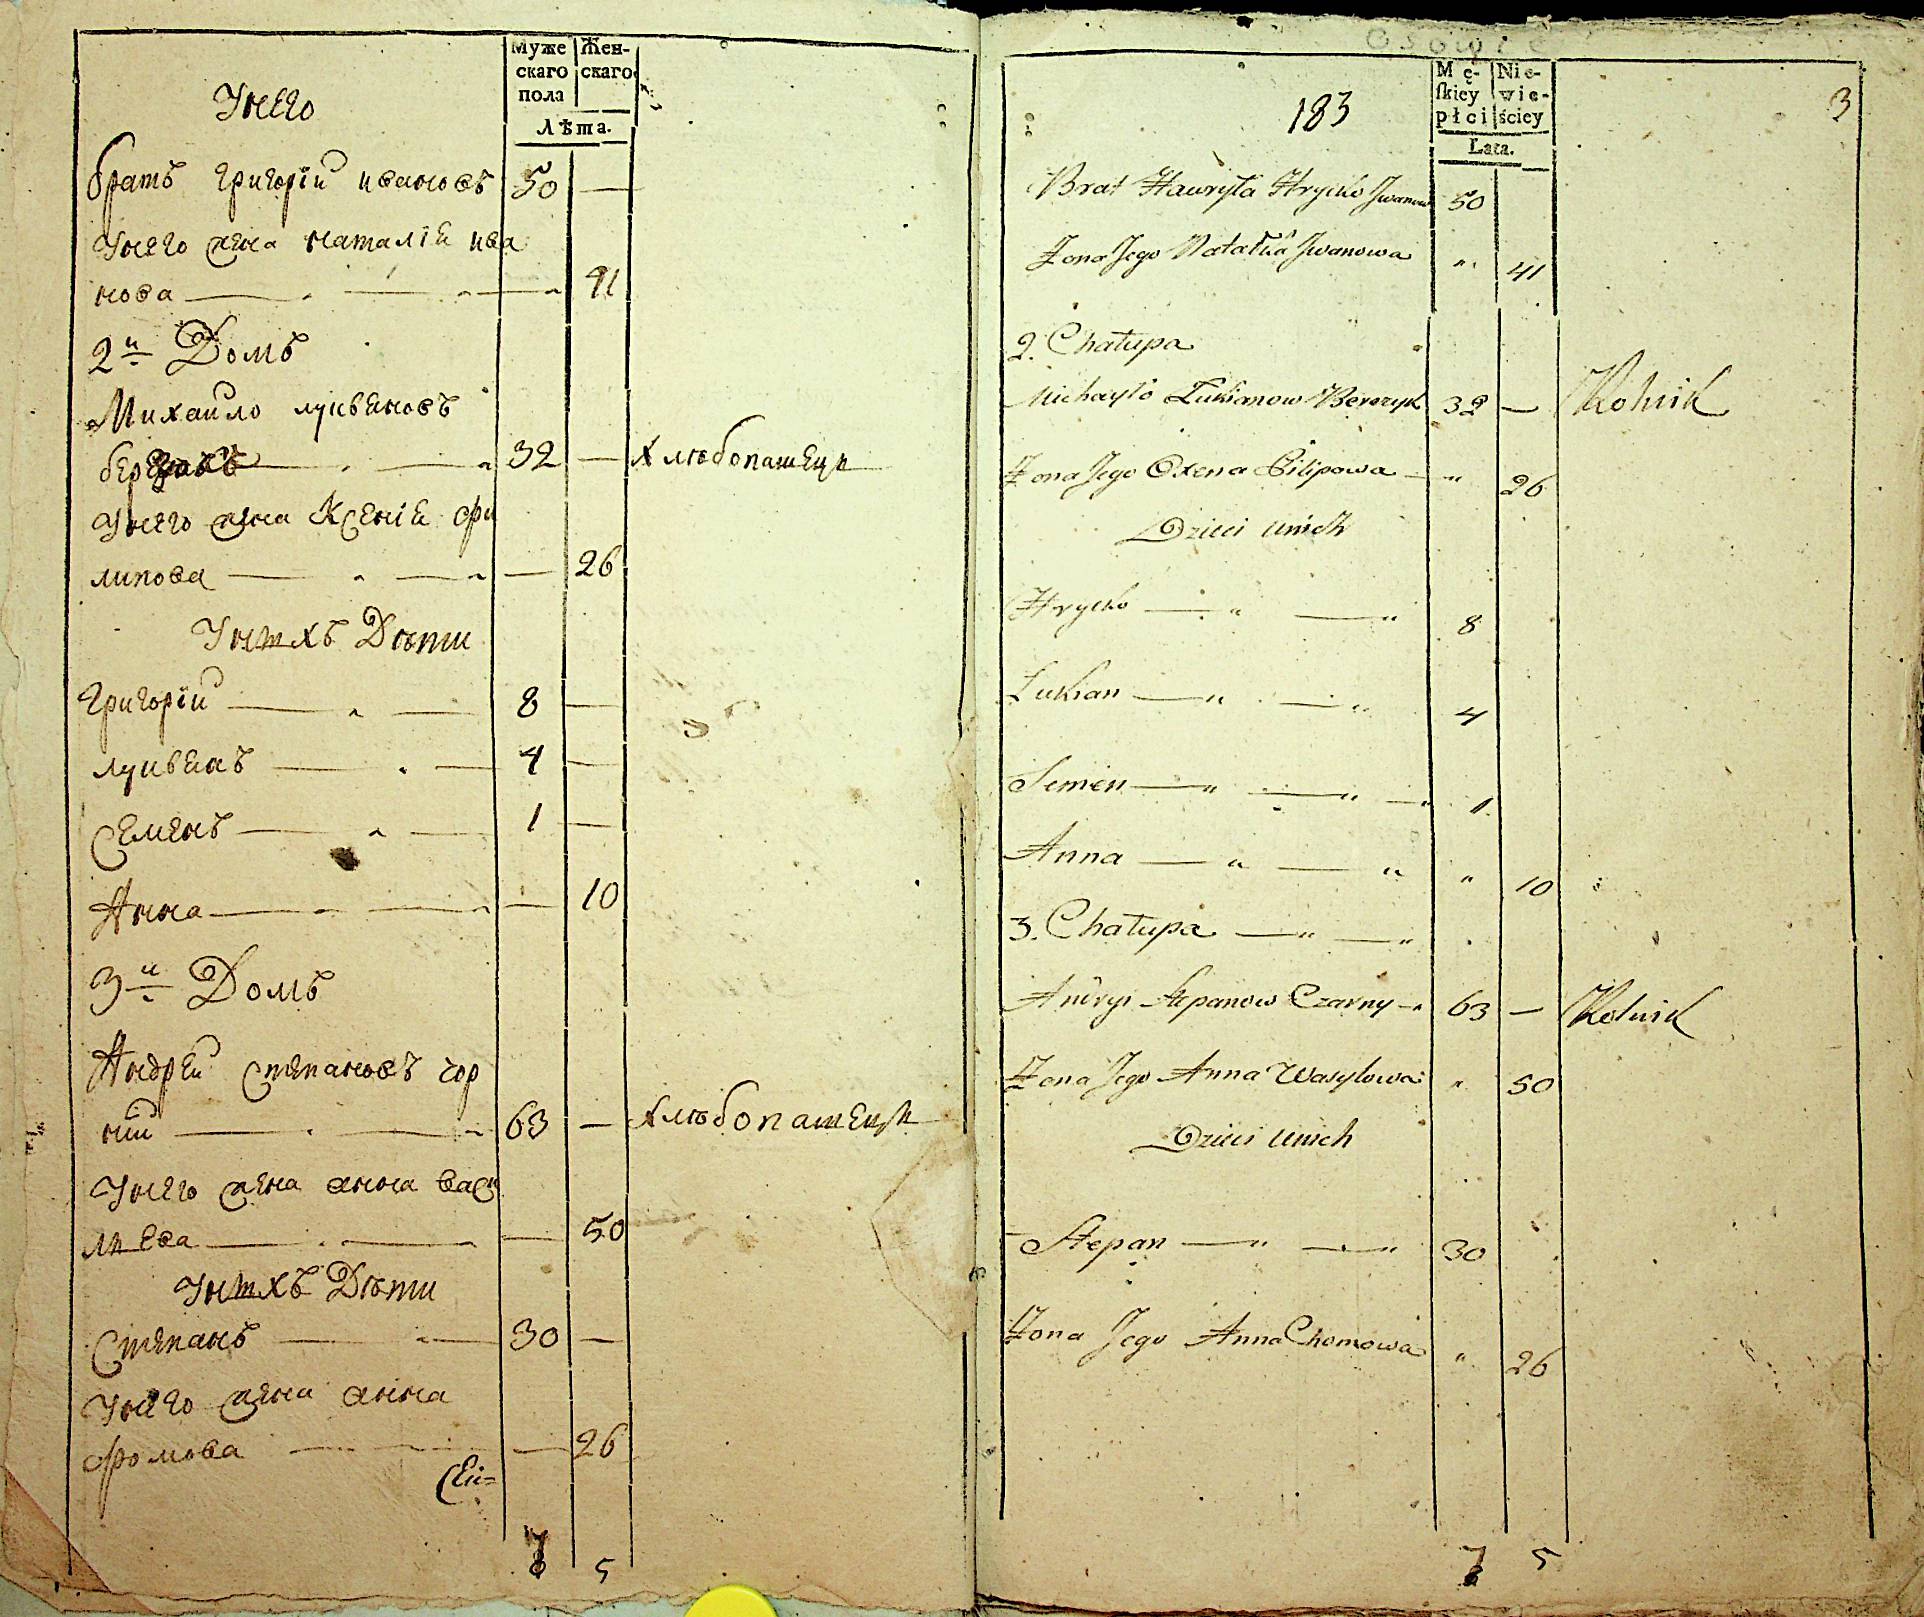 Муже
скаго
пола
Жен-
скаго
Лѣта.
Унего
братъ григорїй ивановъ 50 —
Унего жена наталїя ива
нова — — — 41
2й Домъ
Михайло лукьяновъ
32 — хлѣбопашецъ
Унего жена Ксенїя фи
липова — — — 26
Унихъ Дѣти
григорїй — — 8 —
лукьянъ — — 4 —
Семенъ — — 1 —
Анна — — — 10
3й Домъ
Андрей Степановъ чор
ній — — 63 — хлѣбопашецъ
Унего жена анна васи
лиева — — — 50
Унихъ Дѣти
Степанъ — — 30 —
Унего жена анна
фомова — — — 26
Сей=
7 5
Osowie
Mę-
skiey
płci
Nie-
wie-
ściey
Lata.
183
3
Brat Hawryła Hrycko Jwanow 50
Żona Jego Natalia Jwanowa " 41
2. Chałupa
Michayło Łukianow Berezyk 32 — Rolnik
Żona Jego Oxena Filipowa — " 26
Dzieci unich
Hrycko — " — " 8
Łukian — " — " 4
Semen — " — " — " 1
Anna — " — " " 10
3. Chałupa — " — "
Andryi Stepanow Czarny — " 63 — Rolnik
Żona Jego Anna Wasylowa " 50
Dzieci unich
Stepan — " — " 30
Żona Jego Anna Chomowa " 26
7 5